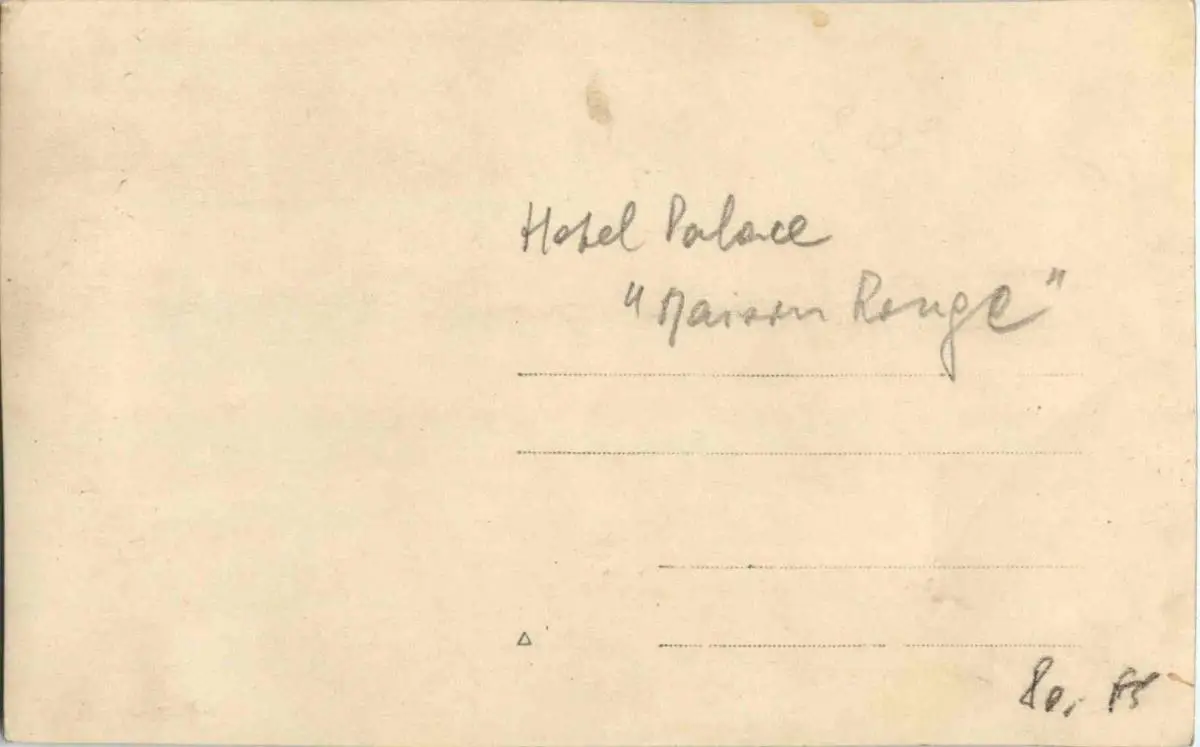 Hotel Palace
"Maison Rouge"